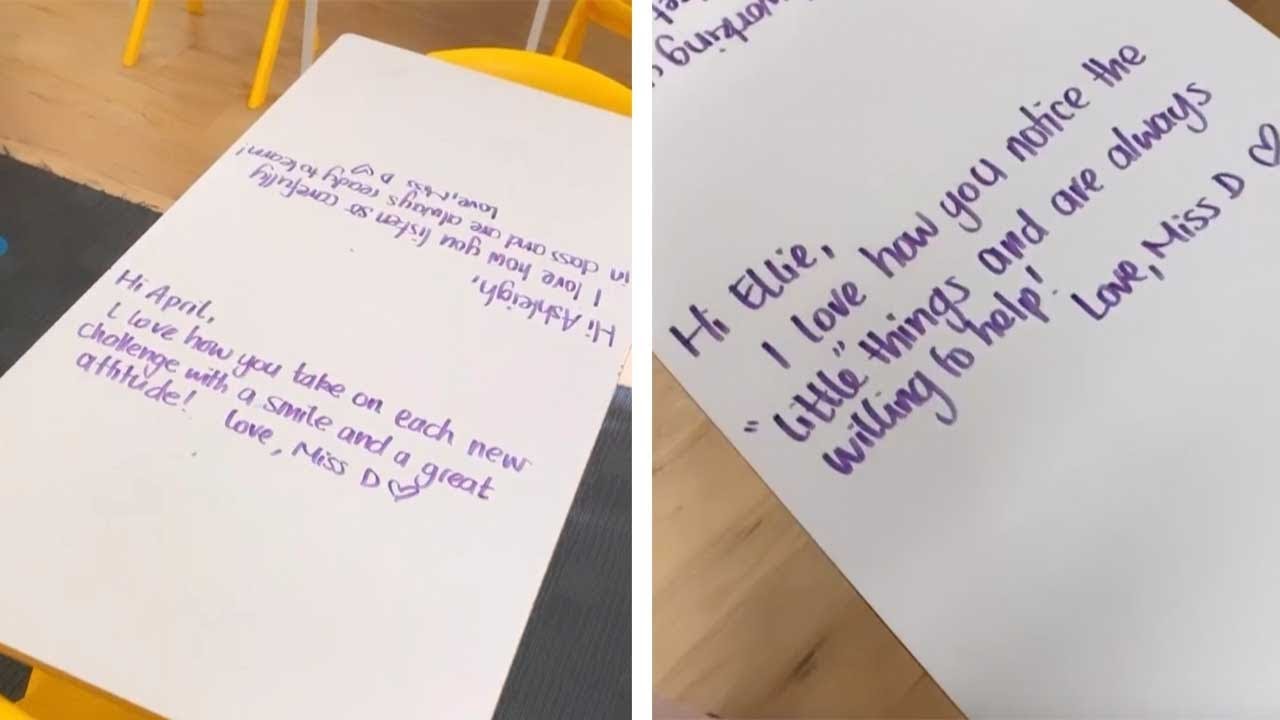 Hi Ashleigh,
I love how you listen so carefully
in class and are always ready to learn!
Love, Miss D ♡
Hi April,
I love how you take on each new
challenge with a smile and a great
attitude! Love, Miss D ♡
working
Hi Ellie,
I love how you notice the
"little" things and are always
willing to help!
Love, Miss D ♡